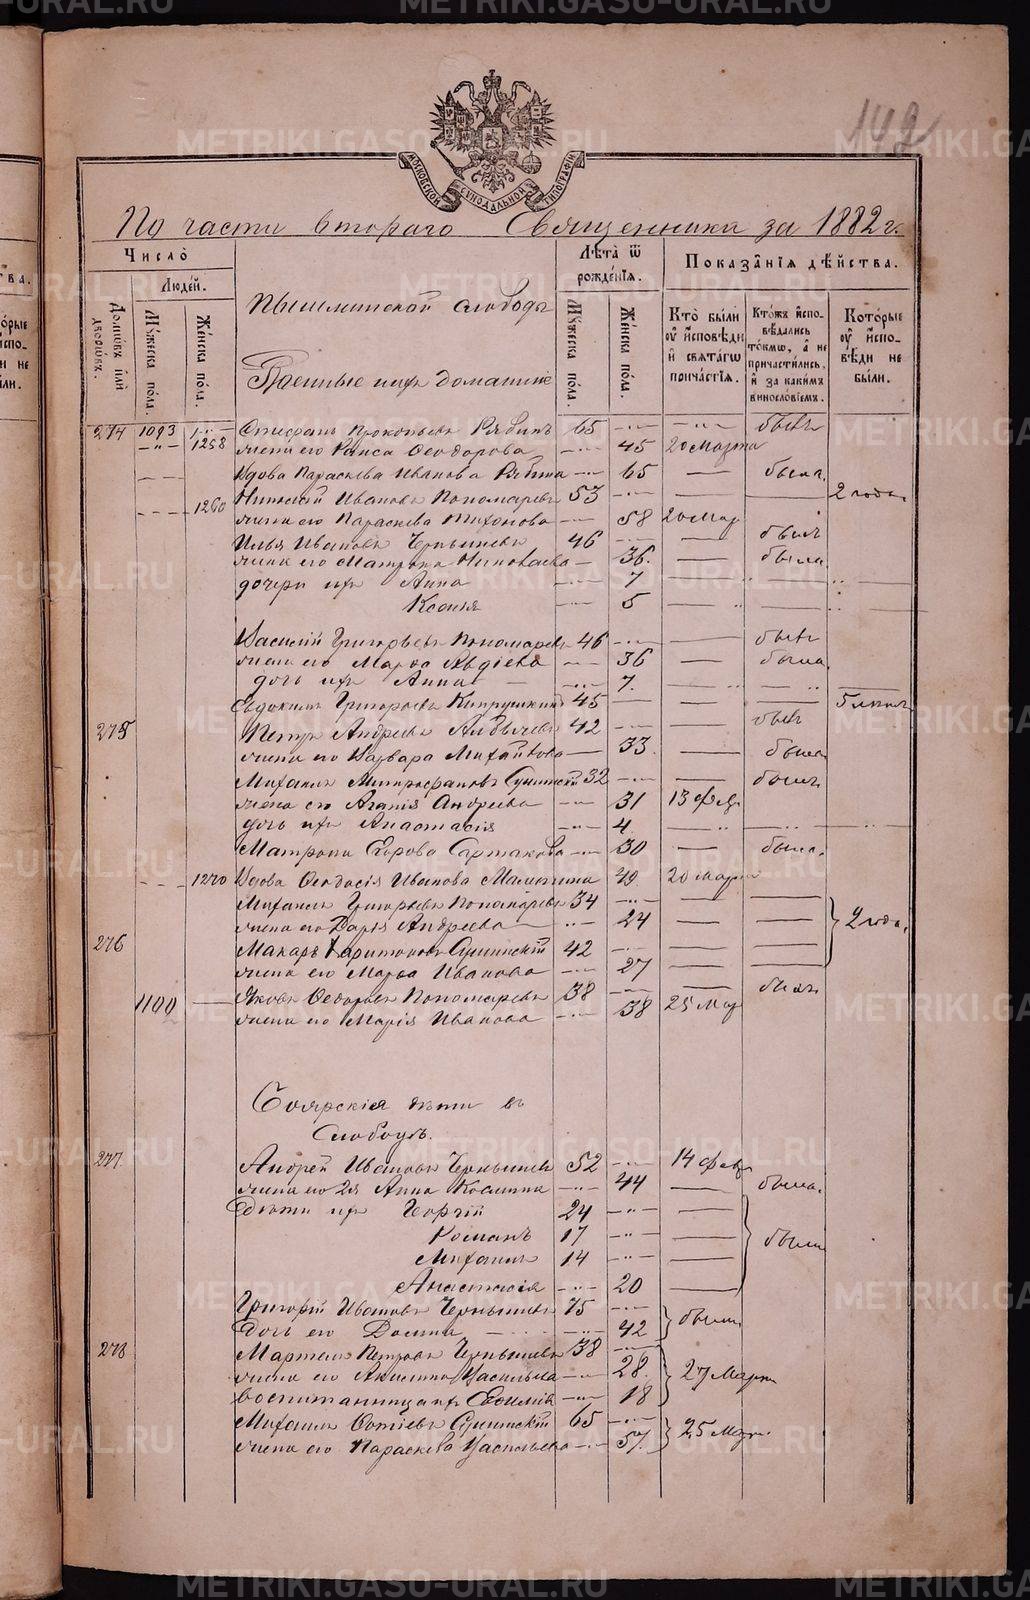 142
МОСКОВСКОЙ СѴНОДАЛЬНОЙ ТИПОГРАФІИ
По части втораго Священника за 1882 г.
Число
Людей.
Домовъ или дворовъ.
Мꙋжеска пола.
Женска пола.
Пышминской слободы
Военные и ихъ домашніе
Лѣта ѿ рожденїѧ.
Мꙋжеска пола.
Женска пола.
Показанїѧ дѣйства.
Кто были оу исповѣди и свѧтагѡ причастїѧ.
Ктожъ исповѣдались токмѡ, а не причастились, и за какимъ винословїемъ.
Которые оу исповѣди не были.
274 1093 Стефанъ Прокопьевъ Рябинъ 65 былъ
1258 жена его Раиса Феодорова 45 20 Марта
Вдова Параскева Иванова 65 была.
Иванова Пономаревъ 53 2 года
1260 жена его Параскева Тихонова 58 20 Мар
Илья Ивановъ Чернышевъ 46 былъ
жена его Матрона Николаева 36. была
дочери ихъ Анна 7
Ксенія 5
Василій Григорьевъ Пономаревъ 46 былъ
жена его Марѳа Авдіева 36 была
дочь ихъ Анна 7.
Евдокимъ Григорьевъ 45 5 лѣтъ
275 Петръ Андреевъ 42 былъ
жена его Варвара Михайлова 33 была
Михаилъ Митрофановъ 32 былъ
жена его Агапія Андреева 31 13 Фев
дочь ихъ Анастасія 4
Матрона Егорова 30 была.
1270 Вдова Ѳеодосія Иванова 49 20 Марта
Михаилъ Григорьевъ Пономаревъ 34
жена его Дарія Андреева 24 2 года.
276 Макаръ Харитоновъ 42
жена его Марѳа Иванова 27
1100 Яковъ Ѳедоровъ Пономаревъ 38 былъ
жена его Марія Иванова 38 25 Мар
Боярскія дѣти въ
Слободѣ.
277. Андрей Ивановъ Чернышевъ 52 14 фев
жена его 2я Анна Космина 44 была.
Дѣти ихъ Георгій 24
Романъ 17 были
Михаилъ 14
Анастасія 20
Григорій Ивановъ Чернышевъ 75
Дочь его Домна 42 были
278 Чернышевъ 38
жена его Акилина Васильева 28. 27 Марта
воспитанница ихъ 18
Михаилъ Фотіевъ 65
жена его Параскева Васильева 57. 25 Мар.
METRIKI.GASO-URAL.RU